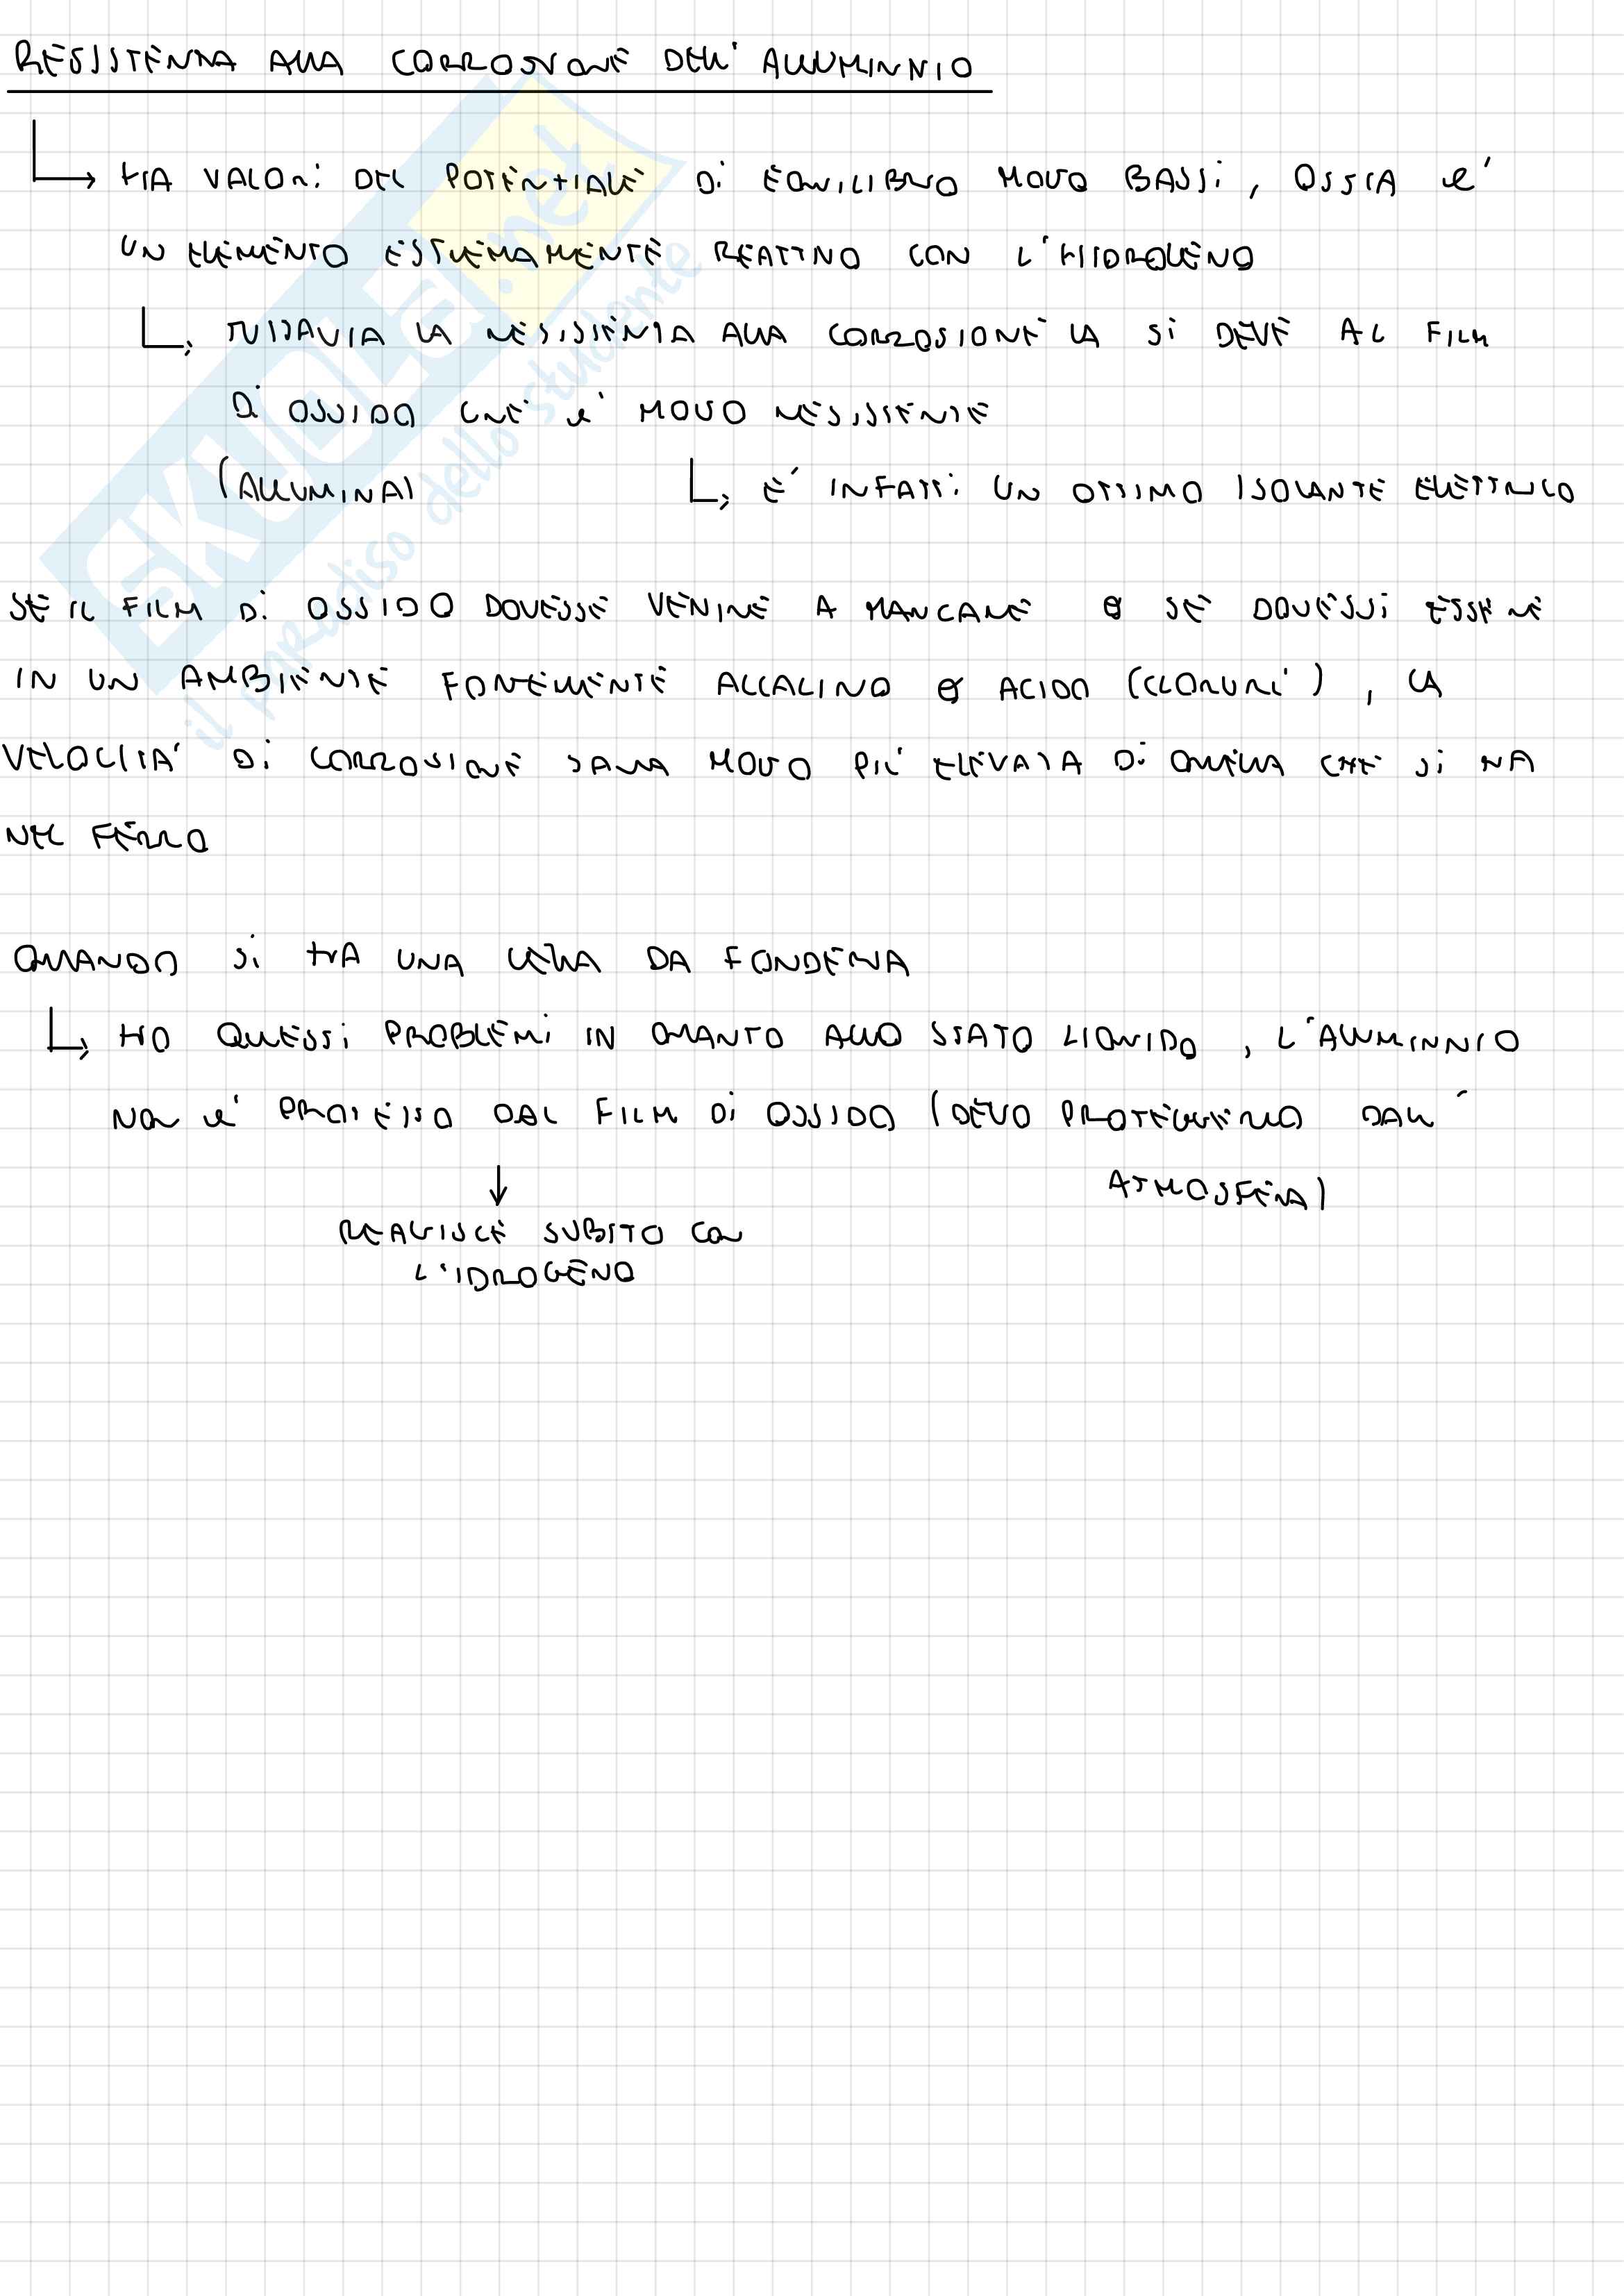 RESISTENZA ALLA CORROSIONE DELL'ALLUMINNIO
HA VALORI DEL POTENZIALE DI EQUILIBRIO MOLTO BASSI, OSSIA e'
UN ELEMENTO ESTREMAMENTE REATTIVO CON L'HIDROGENO
TUTTAVIA LA RESISTENZA ALLA CORROSIONE LA SI DEVE AL FILM
DI OSSIDO CHE e' MOLTO RESISTENTE
(ALLUMINA)
E' INFATTI UN OTTIMO ISOLANTE ELETTRICO
SE IL FILM DI OSSIDO DOVESSE VENIRE A MANCARE O SE DOVESSI ESSERE
IN UN AMBIENTE FORTEMENTE ALCALINO O ACIDO (CLORURI), LA
VELOCITA' DI CORROSIONE SARA MOLTO PIU' ELEVATA DI QUELLA CHE SI HA
NEL FERRO
QUANDO SI HA UNA LEGA DA FONDERIA
HO QUESTI PROBLEMI IN QUANTO ALLO STATO LIQUIDO, L'ALLUMINNIO
NON e' PROTETTO DAL FILM DI OSSIDO (DEVO PROTEGGERLO DALL'
ATMOSFERA)
REAGISCE SUBITO CON
L'IDROGENO
SKUOLA.net
il paradiso dello studente